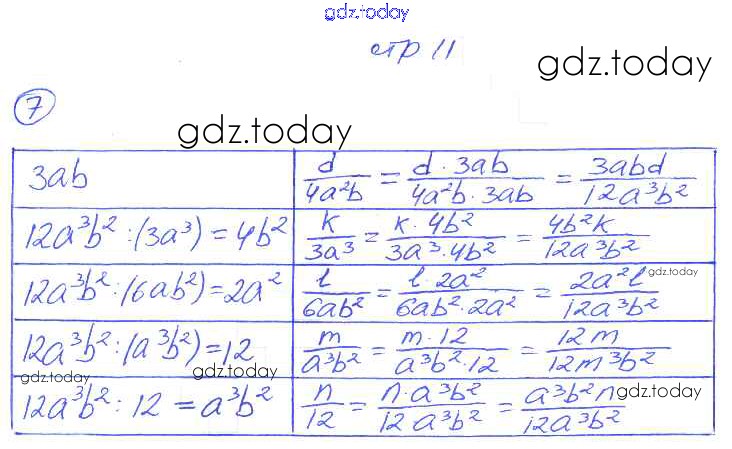 gdz.today
стр 11
gdz.today
7
gdz.today
3ab | d/4a²b = d·3ab/4a²b·3ab = 3abd/12a³b²
12a³b² : (3a³) = 4b² | k/3a³ = k·4b²/3a³·4b² = 4b²k/12a³b²
12a³b² : (6ab²) = 2a² | l/6ab² = l·2a²/6ab²·2a² = 2a²l/12a³b² gdz.today
12a³b² : (a³b²) = 12 | m/a³b² = m·12/a³b²·12 = 12m/12m³b²
gdz.today gdz.today
12a³b² : 12 = a³b² | n/12 = n·a³b²/12a³b² = a³b²n/12a³b² gdz.today